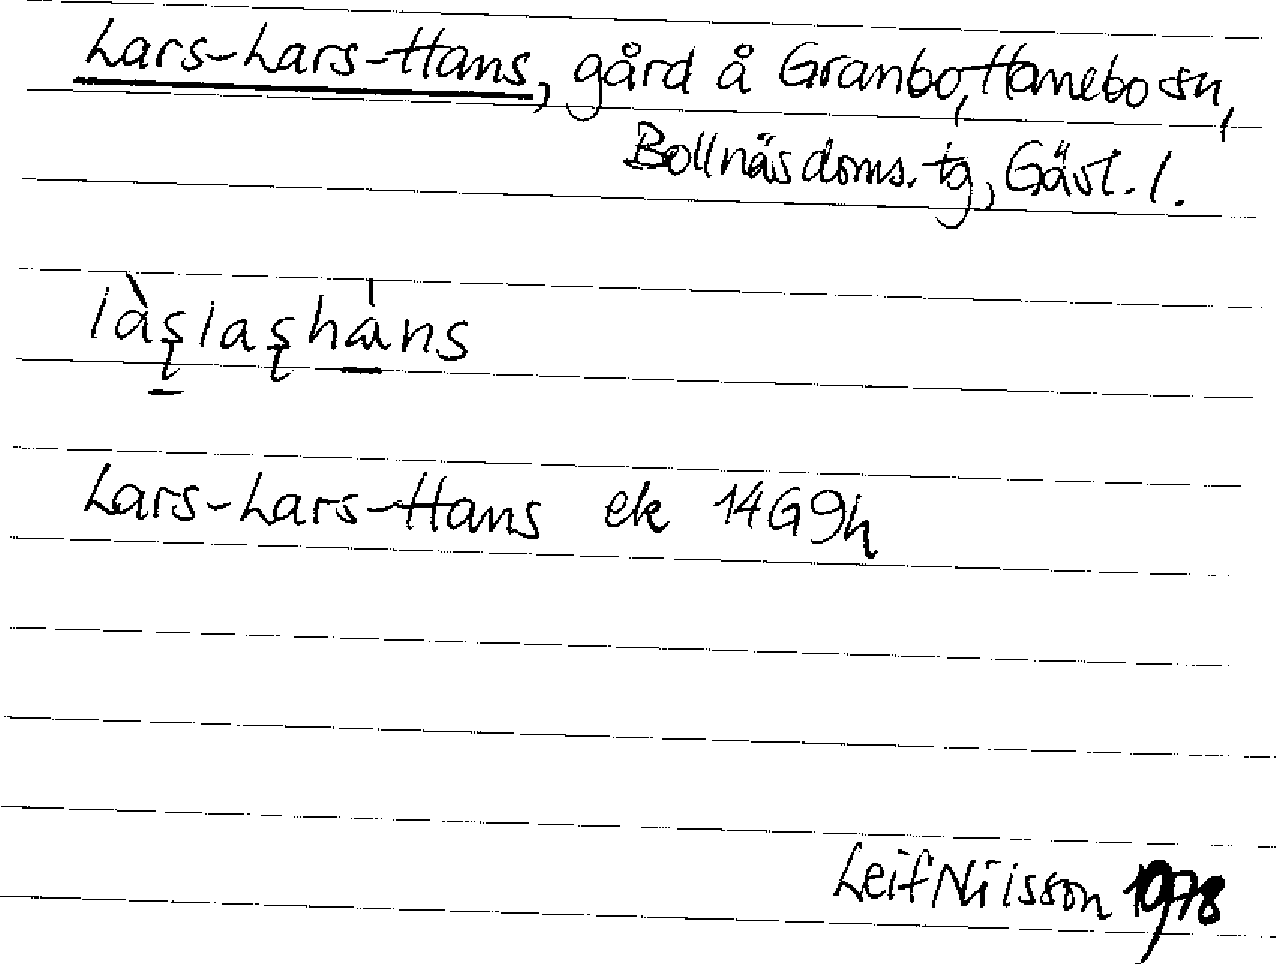 Lars-Lars-Hans, gård å Granbo, Hanebo sn,
Bollnäs doms. tg, Gävl. l.
làʂlaʂhàns
Lars-Lars-Hans ek 14G9h
Leif Nilsson 1978